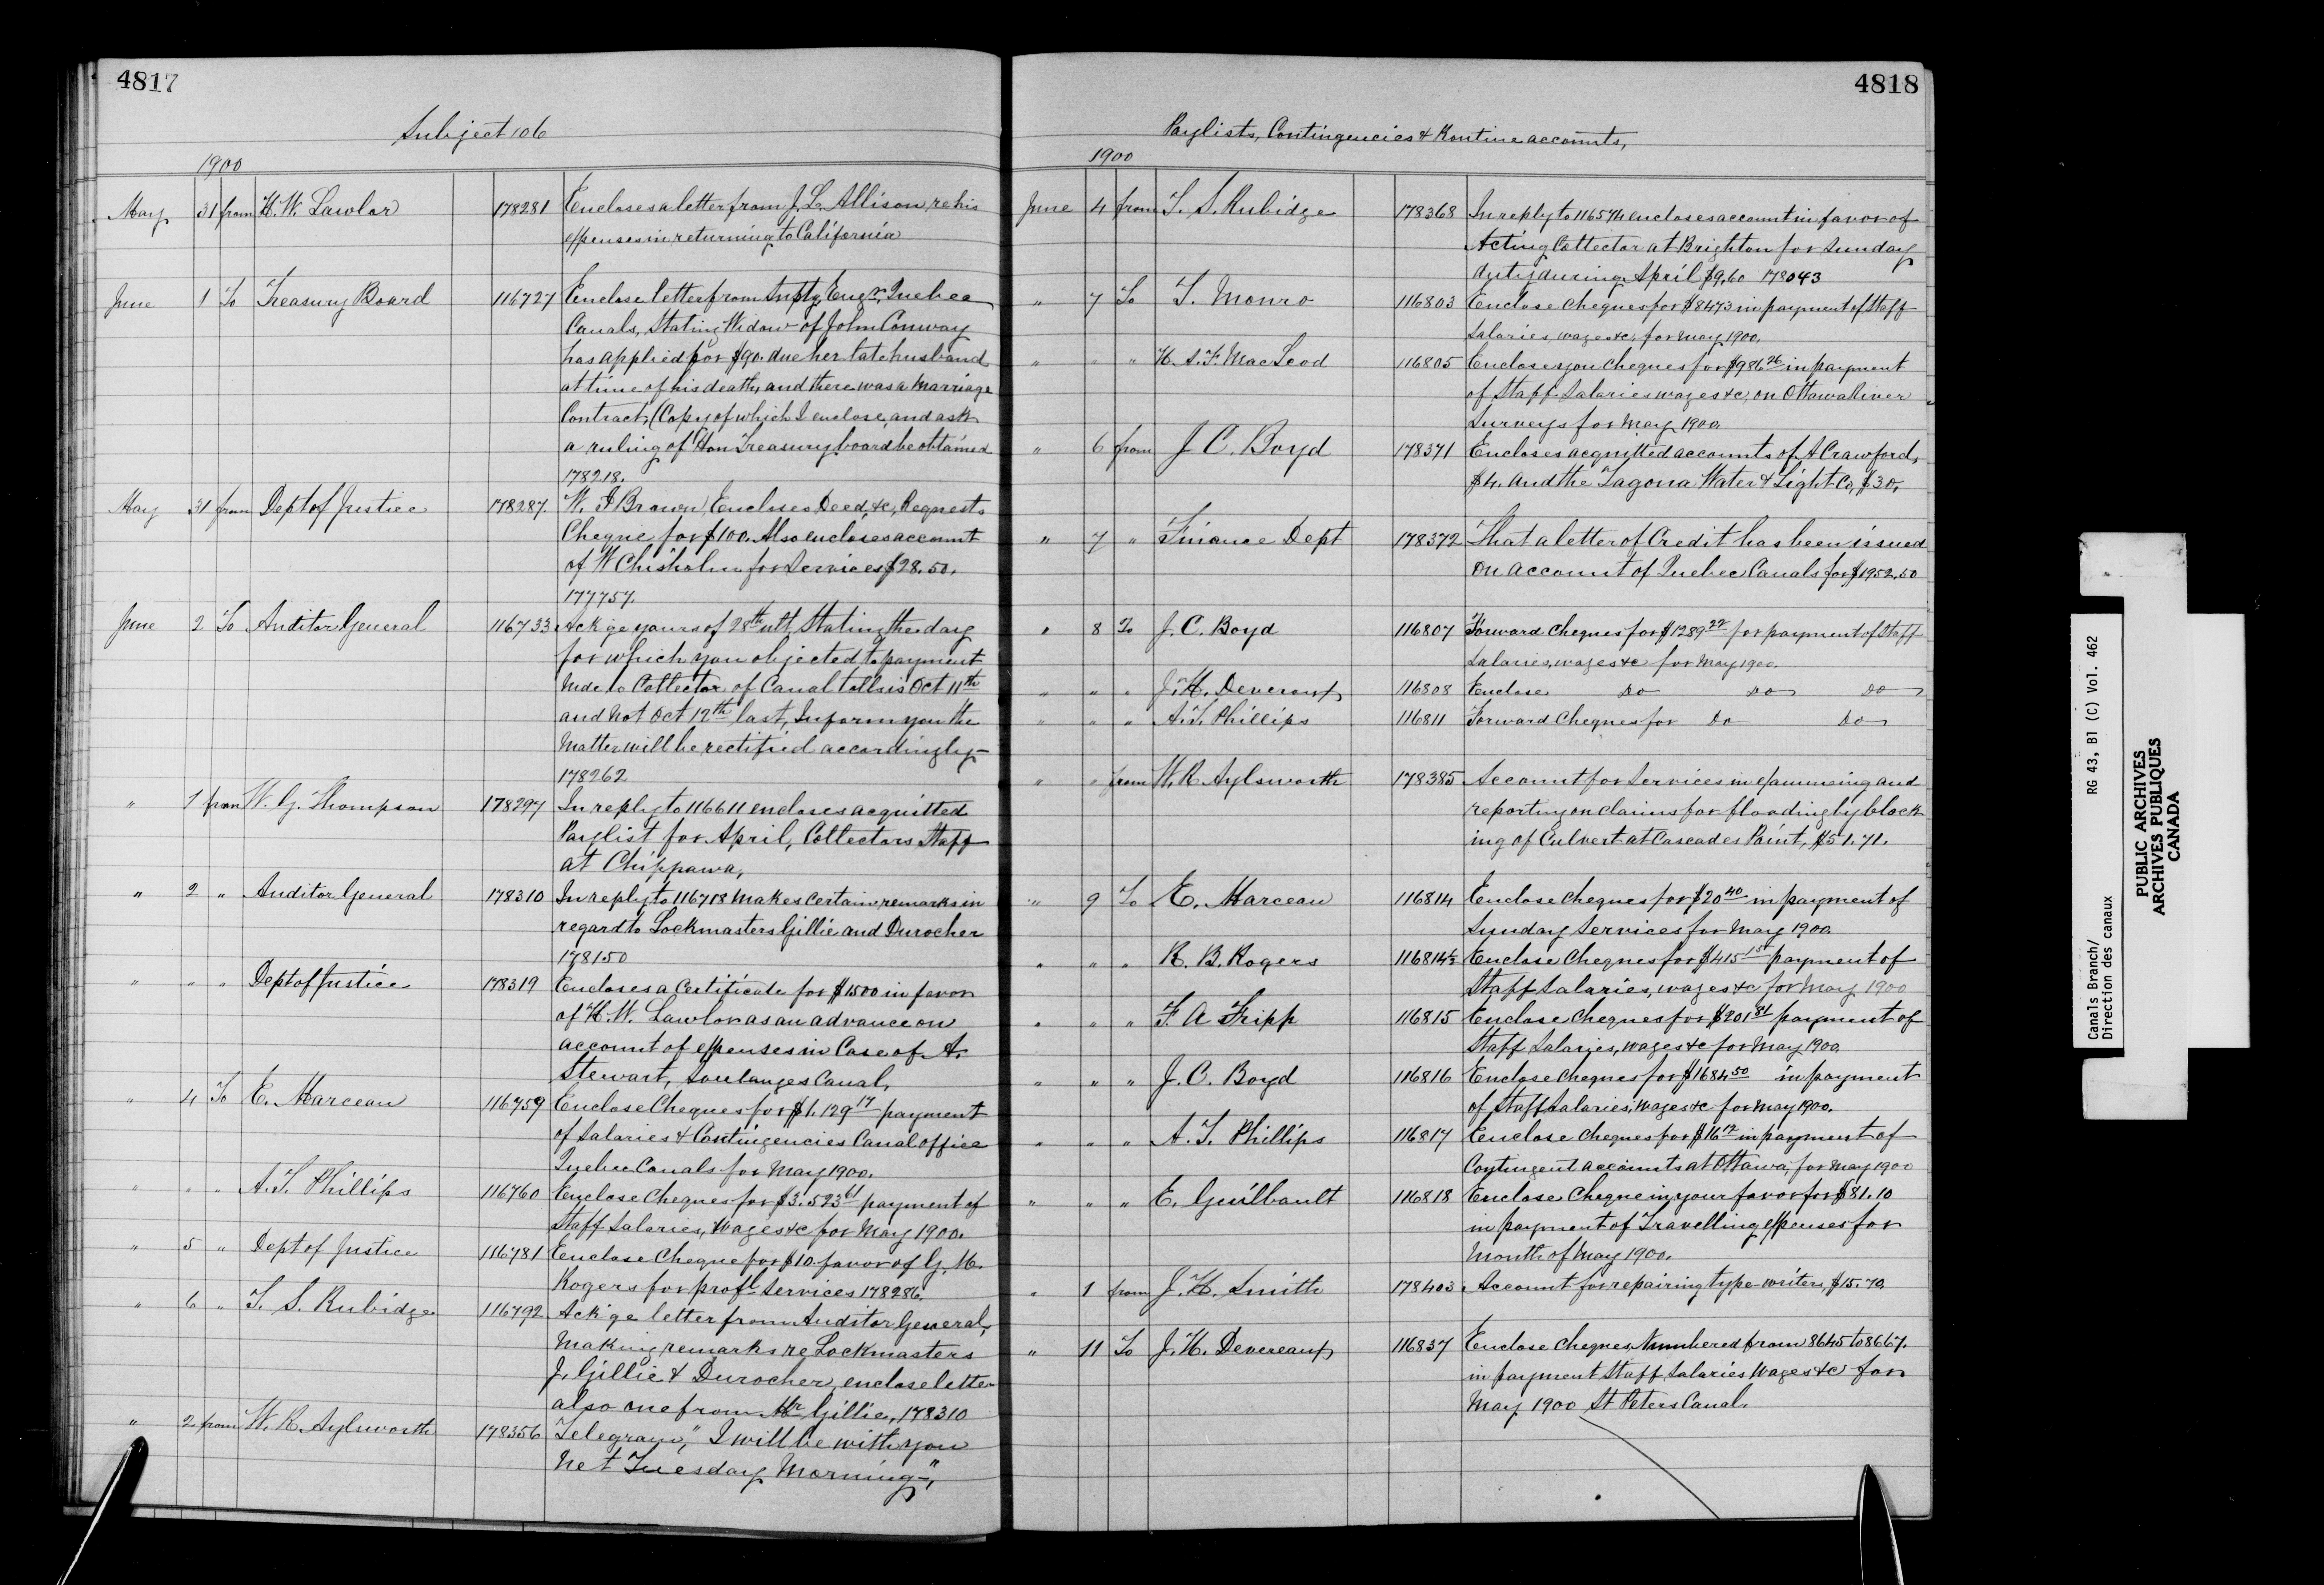 4817
Subject 106
1900
May 31 from H. W. Lawlor 178281 Encloses a letter from J. L. Allison, re his
expenses in returning to California
June 1 To Treasury Board 116727 Enclose letter from Suptg Engr, Quebec
Canals, Stating Widow of John Conway
has applied for $90. due her late husband
at time of his death, and there was a Marriage
Contract, (Copy of which I enclose, and ask
a ruling of Hon Treasury board be obtained
178218.
May 31 from Dept of Justice 178287. W. I Brown, Encloses Deed, &c, Requests
Cheque for $100. Also encloses account
of W Chisholm for Services $28.50.
177757.
June 2 To Auditor General 116733 Ack'ge yours of 28th ult, Stating the day
for which you objected to payment
Mde to Collector of Canal tolls is Oct 11th
and not Oct 12th last, Inform you the
Matter will be rectified accordingly-
178262
" 1 from W. G. Thompson 178297 In reply to 116611 encloses acquitted
Paylist for April, Collectors Staff
at Chippawa,
" 2 " Auditor General 178310 In reply to 116718 makes certain remarks in
regard to Lockmasters Gillie and Durocher
178150
" " " Dept of Justice 178319 Encloses a Certificate for $1500 in favor
of H. W. Lawlor as an advance on
account of expenses in Case of A.
Stewart, Soulanges Canal,
" 4 To E. Marceau 116759 Enclose Cheques for $1.129 17 payment
of Salaries & Contingencies Canal office
Quebec Canals for May 1900.
" " " A. T. Phillips 116760 Enclose Cheques for $3.523 61 payment of
Staff Salaries, Wages &c for May 1900.
" 5 " Dept of Justice 116781 Enclose Cheque for $10. favor of G. M.
Rogers for prof'l Services 178286.
" 6 " T. S. Rubidge 116792 Ack'ge letter from Auditor General,
Making remarks re Lockmasters
J. Gillie & Durocher, enclose letter
also one from Mr Gillie, 178310
" 2 from W. R. Aylsworth 178356 Telegram, "I will be with you
Next Tuesday Morning-",
4818
Paylists, Contingencies & Routine accounts,
1900
June 4 from T. S. Rubidge 178368 In reply to 116574 encloses account in favor of
Acting Collector at Brighton for Sunday
duty during April $9.60 178043
" 7 To T. Monro 116803 Enclose Cheques for $8473 in payment of Staff
Salaries, wages &c, for May 1900,
" " " H. A. F. MacLeod 116805 Encloses you Cheques for $986 26 in payment
of Staff Salaries wages &c, on Ottawa River
Surveys for May 1900.
" 6 from J C. Boyd 178371 Encloses acquitted accounts of A Crawford,
$4. and the Tagona Water & Light Co, $30,
" 7 " Finance Dept 178372 That a letter of Credit has been issued
on account of Quebec Canals for $1952.50
" 8 To J. C. Boyd 116807 Forward Cheques for $1289 22 for payment of Staff
Salaries, wages &c for May 1900.
" " " J. H. Devereaux 116808 Enclose Do Do Do
" " " A. T. Phillips 116811 Forward Cheques for Do Do
" " from W. R. Aylsworth 178385 Account for Services in examining and
reporting on claims for flooding by block
ing of Culvert at Cascades Point, $51.71.
" 9 To E. Marceau 116814 Enclose Cheques for $20 40 in payment of
Sunday Services for May 1900.
" " " R. B. Rogers 116814½ Enclose Cheques for $415 15 payment of
Staff Salaries, wages &c for May 1900
" " " F. A Fripp 116815 Enclose Cheques for $201 81 payment of
Staff Salaries, wages &c for May 1900.
" " " J. C. Boyd 116816 Enclose Cheques for $1684 50 in payment
of Staff Salaries, Wages &c for May 1900.
" " " A. T. Phillips 116817 Enclose Cheques for $16 12 in payment of
Contingent accounts at Ottawa, for May 1900
" " " E. Guilbault 116818 Enclose Cheque in your favor for $81.10
in payment of Travelling expenses for
Month of May 1900.
" 1 from J. H. Smith 178403 Account for repairing type-writers, $15.70.
" 11 To J. H. Devereaux 116837 Enclose Cheques Numbered from 8645 to 8667.
in payment Staff, Salaries Wages &c for
May 1900 St Peters Canal.
Canals Branch/ RG 43, B1 (C) Vol. 462
Direction des canaux
PUBLIC ARCHIVES
ARCHIVES PUBLIQUES
CANADA